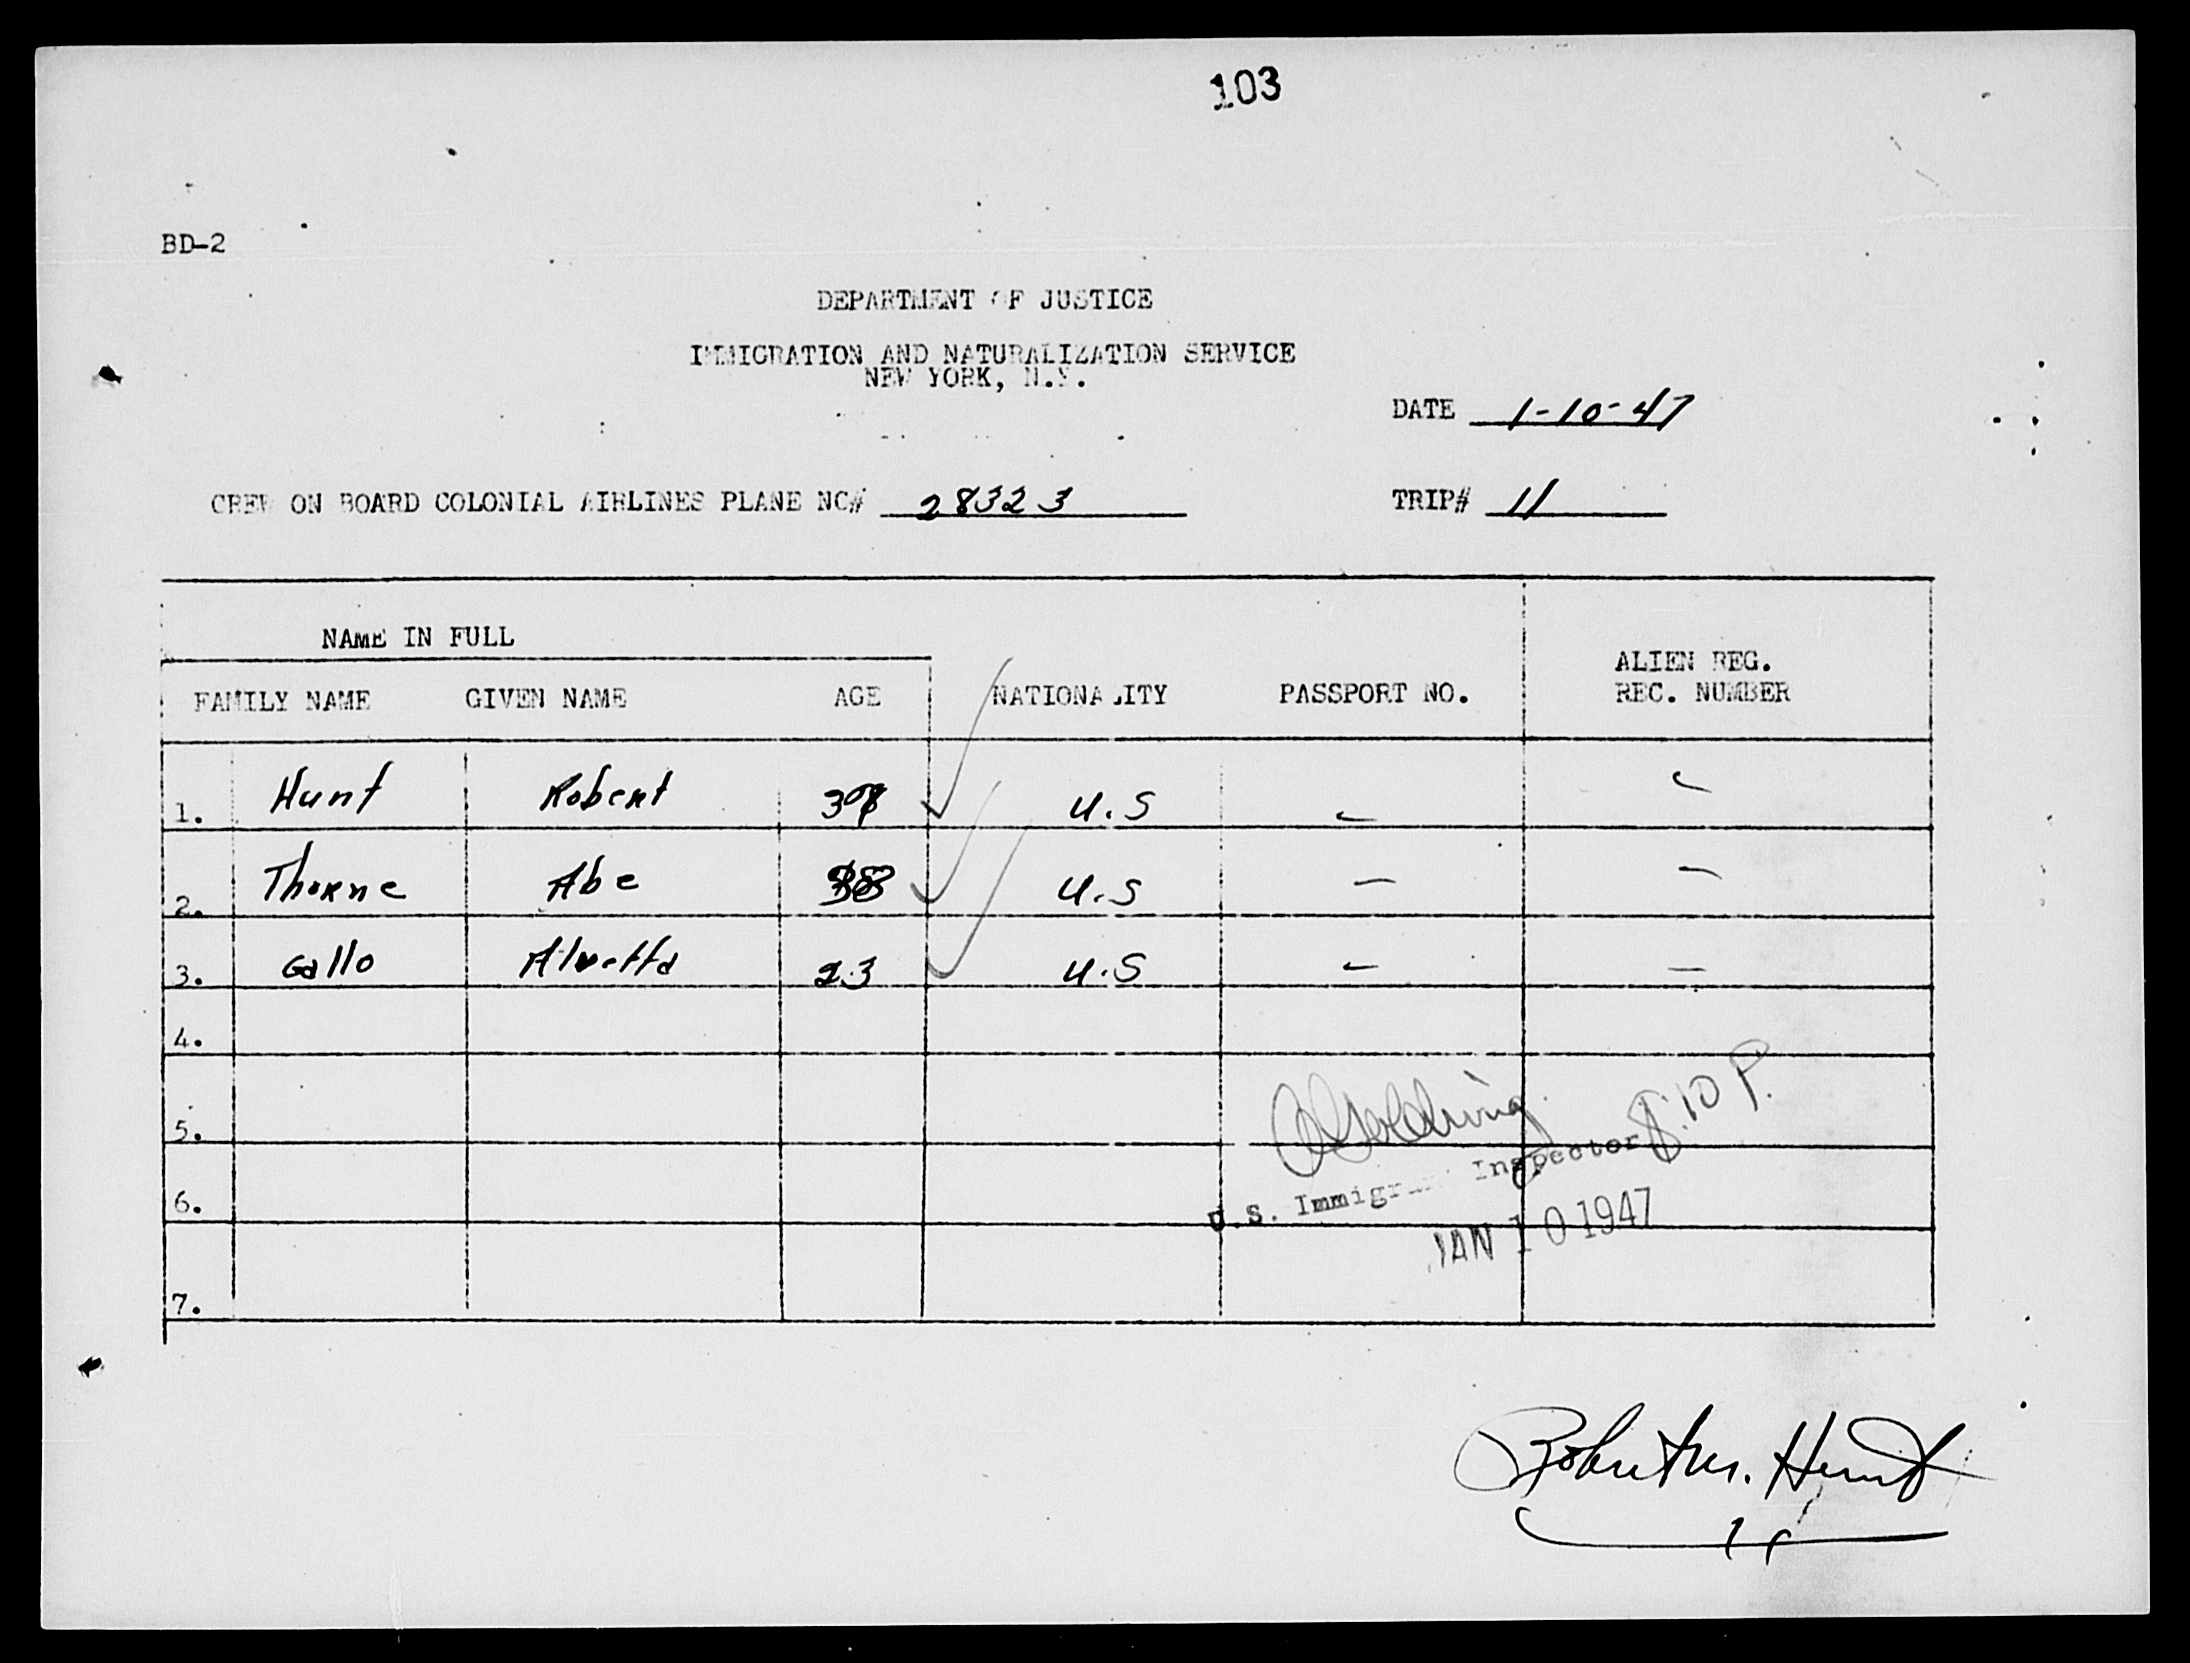 103
BD-2
DEPARTMENT OF JUSTICE
IMMIGRATION AND NATURALIZATION SERVICE
NEW YORK, N.Y.
DATE 1-10-47
CREW ON BOARD COLONIAL AIRLINES PLANE NC# 28323 TRIP# 11
NAME IN FULL
FAMILY NAME GIVEN NAME AGE NATIONALITY PASSPORT NO. ALIEN REG. REC. NUMBER
1. Hunt Robert U.S - -
2. Thorne Abe U.S - -
3. Gallo Alvetta 23 U.S - -
4.
5.
6.
7.
8:10 P.
U.S. Immigrant Inspector
JAN 10 1947
Robert M. Hunt